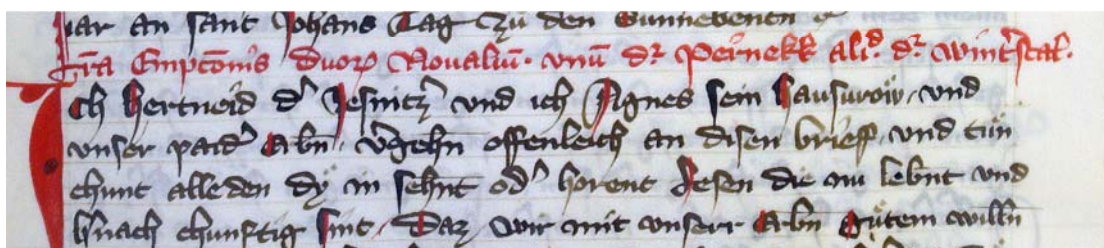 iar an sant Johans Tag zu den Sunnebentn
Lr̃a Empcōnis duorꝝ Noualiū. vnū dr̃ Pernekk ali.d dr̃ wint̃stal.
Ich hertneid d' Jesnitz' vnd ich Agnes sein hausurow, vnd
vnser paid' Erbn, v̾gehn offenleich an disen brief, vnd tün
chunt alle den dÿ in sehnt od' horent lesen die nu lebnt vnd
h'nach chunftig sint, Daz wir mit vnserr Erbn gütem willn